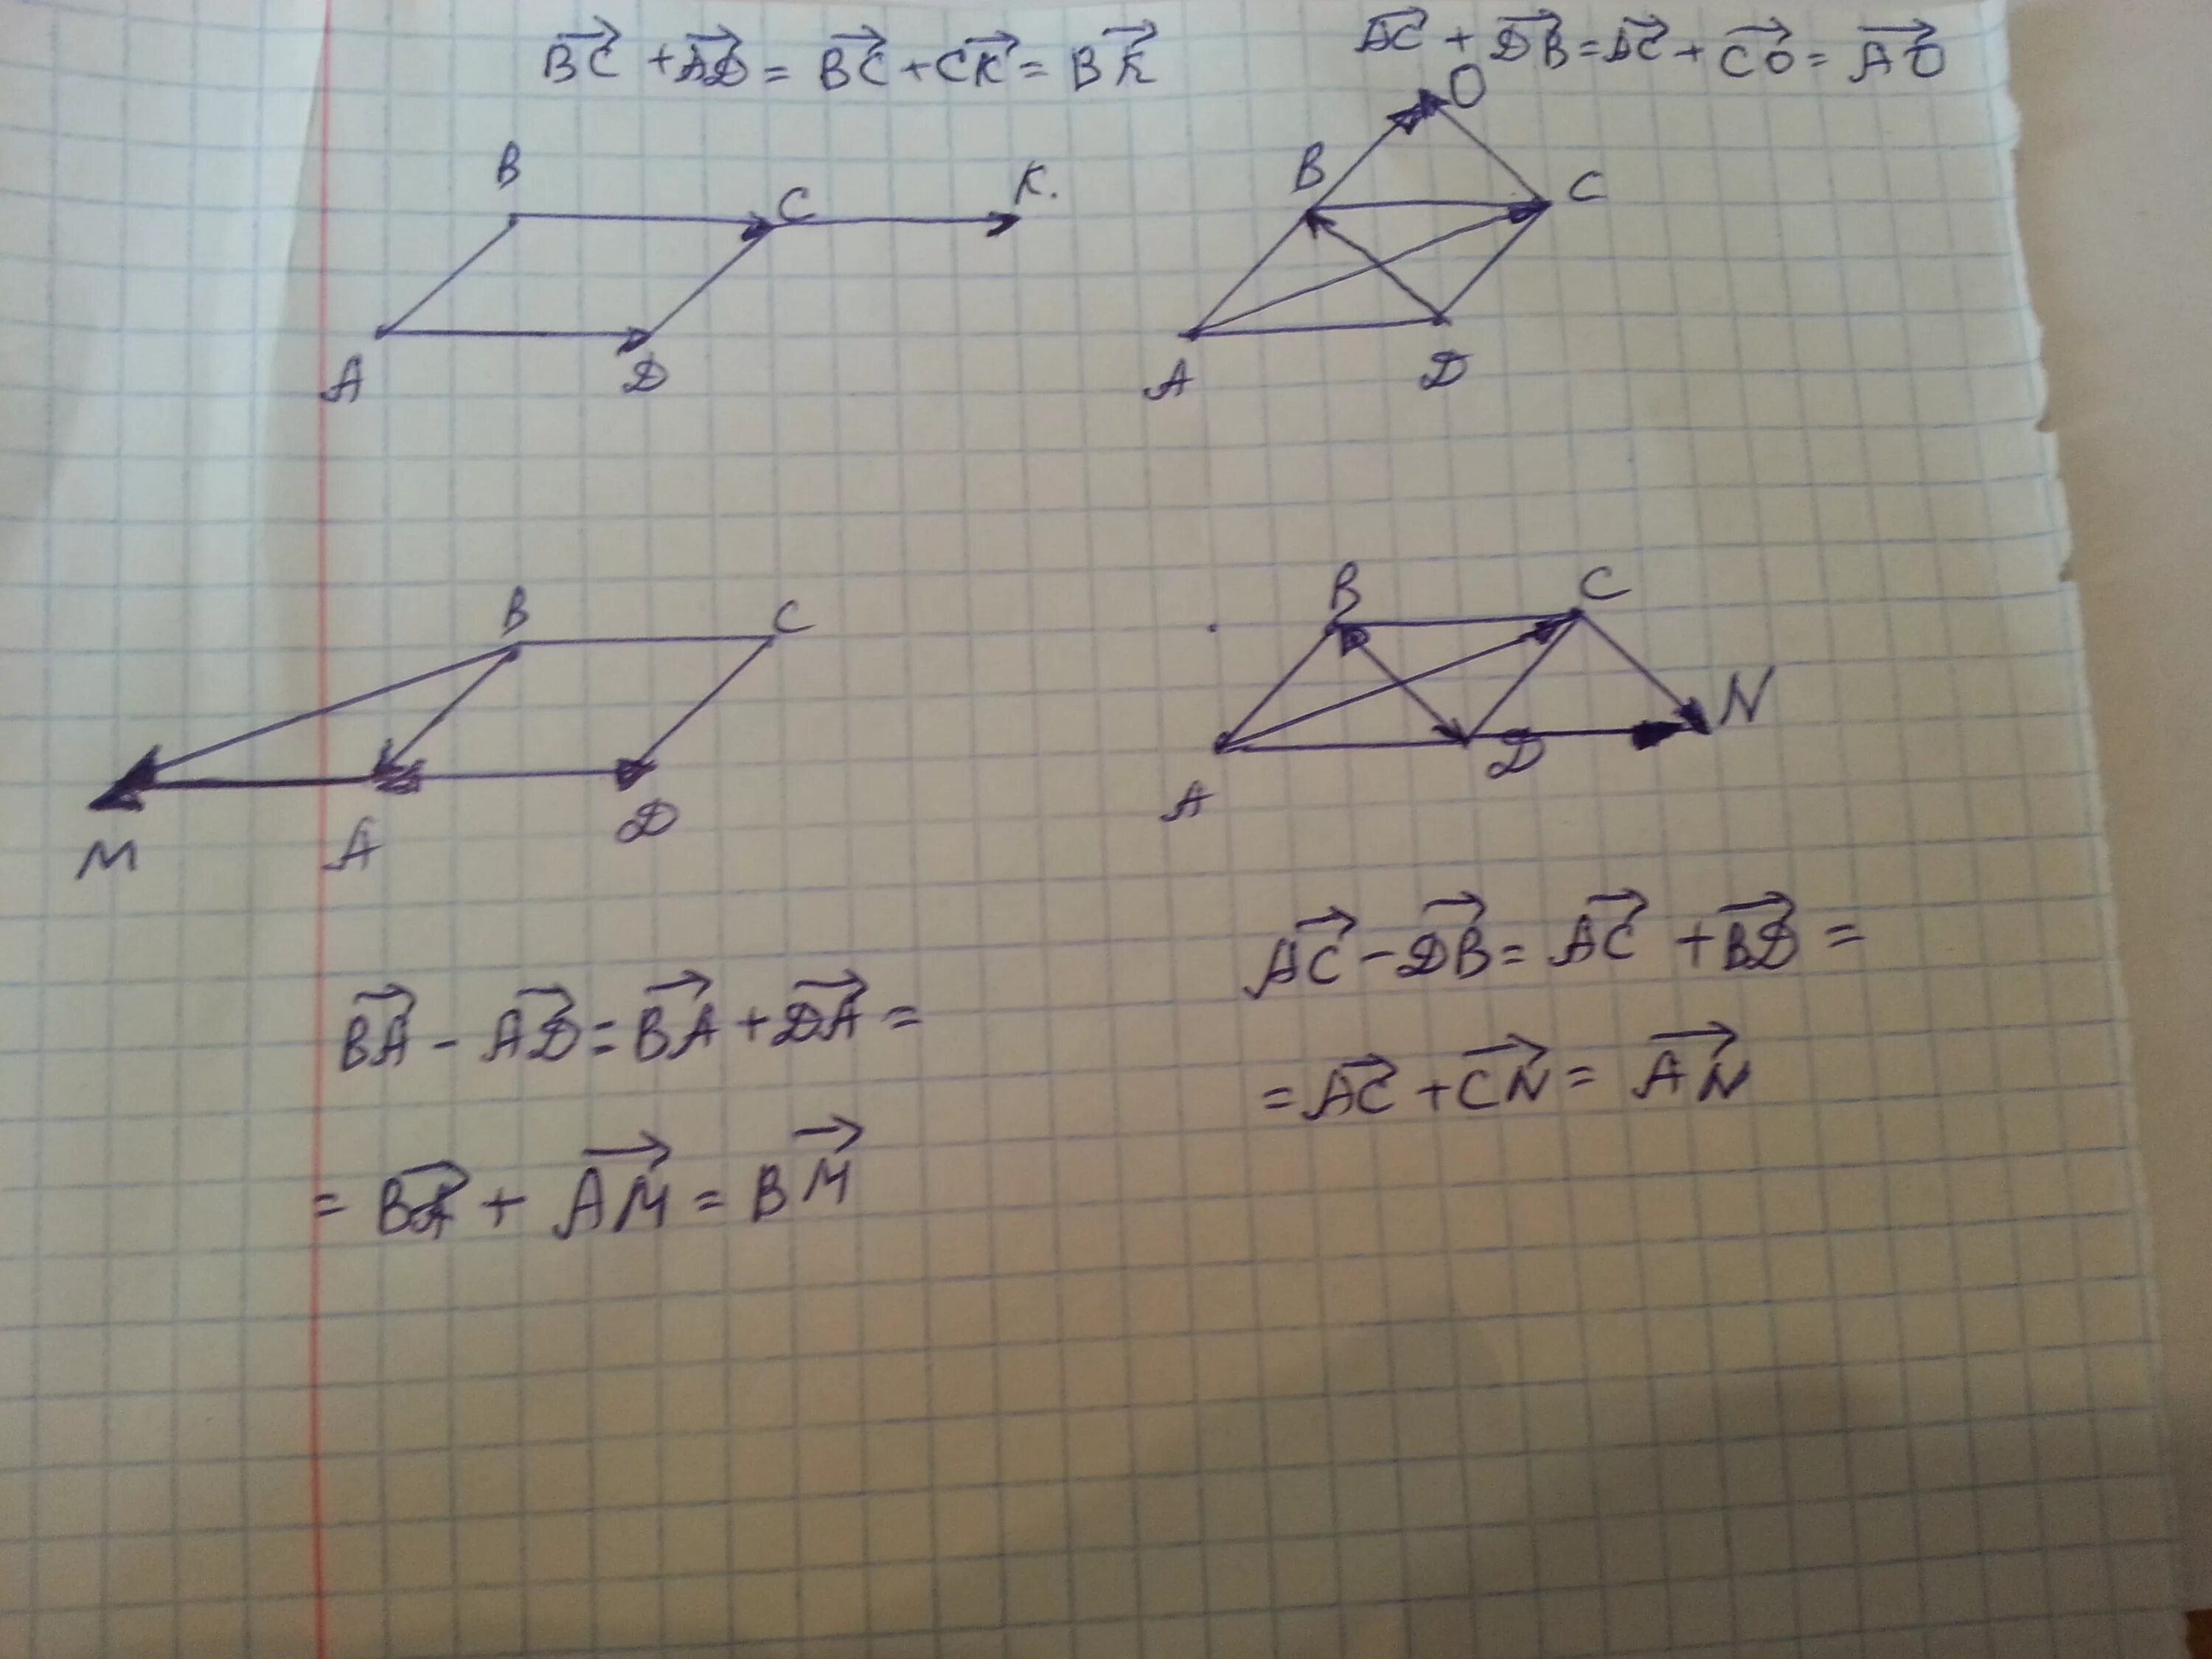 $\overrightarrow{BC} + \overrightarrow{AD} = \overrightarrow{BC} + \overrightarrow{CK} = \overrightarrow{BK}$
$\overrightarrow{AC} + \overrightarrow{DB} = \overrightarrow{AC} + \overrightarrow{CO} = \overrightarrow{AO}$
B C K.
A D
O
B C
A D
B C
M A D
B C
N
A D
$\overrightarrow{BA} - \overrightarrow{AD} = \overrightarrow{BA} + \overrightarrow{DA} =$
$= \overrightarrow{BA} + \overrightarrow{AM} = \overrightarrow{BM}$
$\overrightarrow{AC} - \overrightarrow{DB} = \overrightarrow{AC} + \overrightarrow{BD} =$
$= \overrightarrow{AC} + \overrightarrow{CN} = \overrightarrow{AN}$